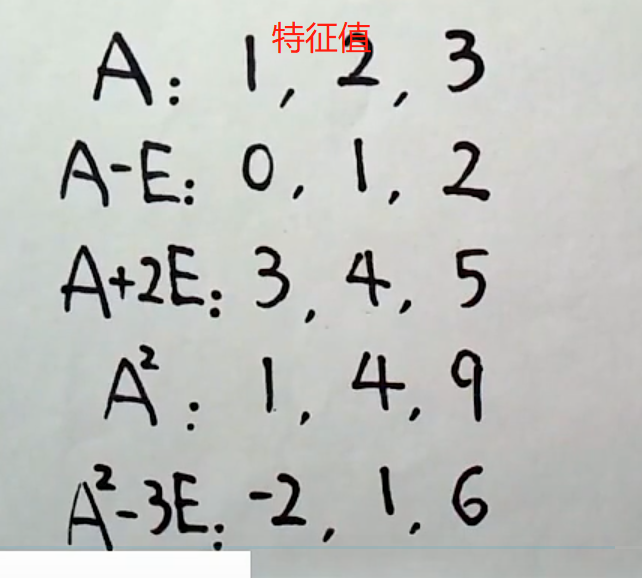 特征值
A: 1, 2, 3
A-E: 0, 1, 2
A+2E: 3, 4, 5
A²: 1, 4, 9
A²-3E: -2, 1, 6